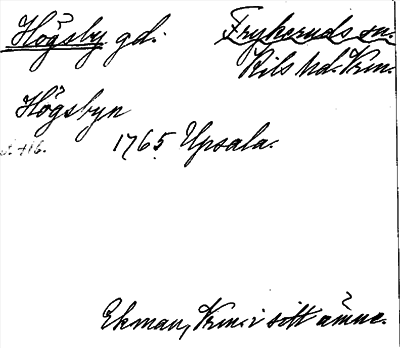 Högsby gd. Frykeruds sn.
Kils hd. Vrm.
Högsbyn
s. 416.
1765 Upsala.
Ekman, Vrm. i sitt ämne.